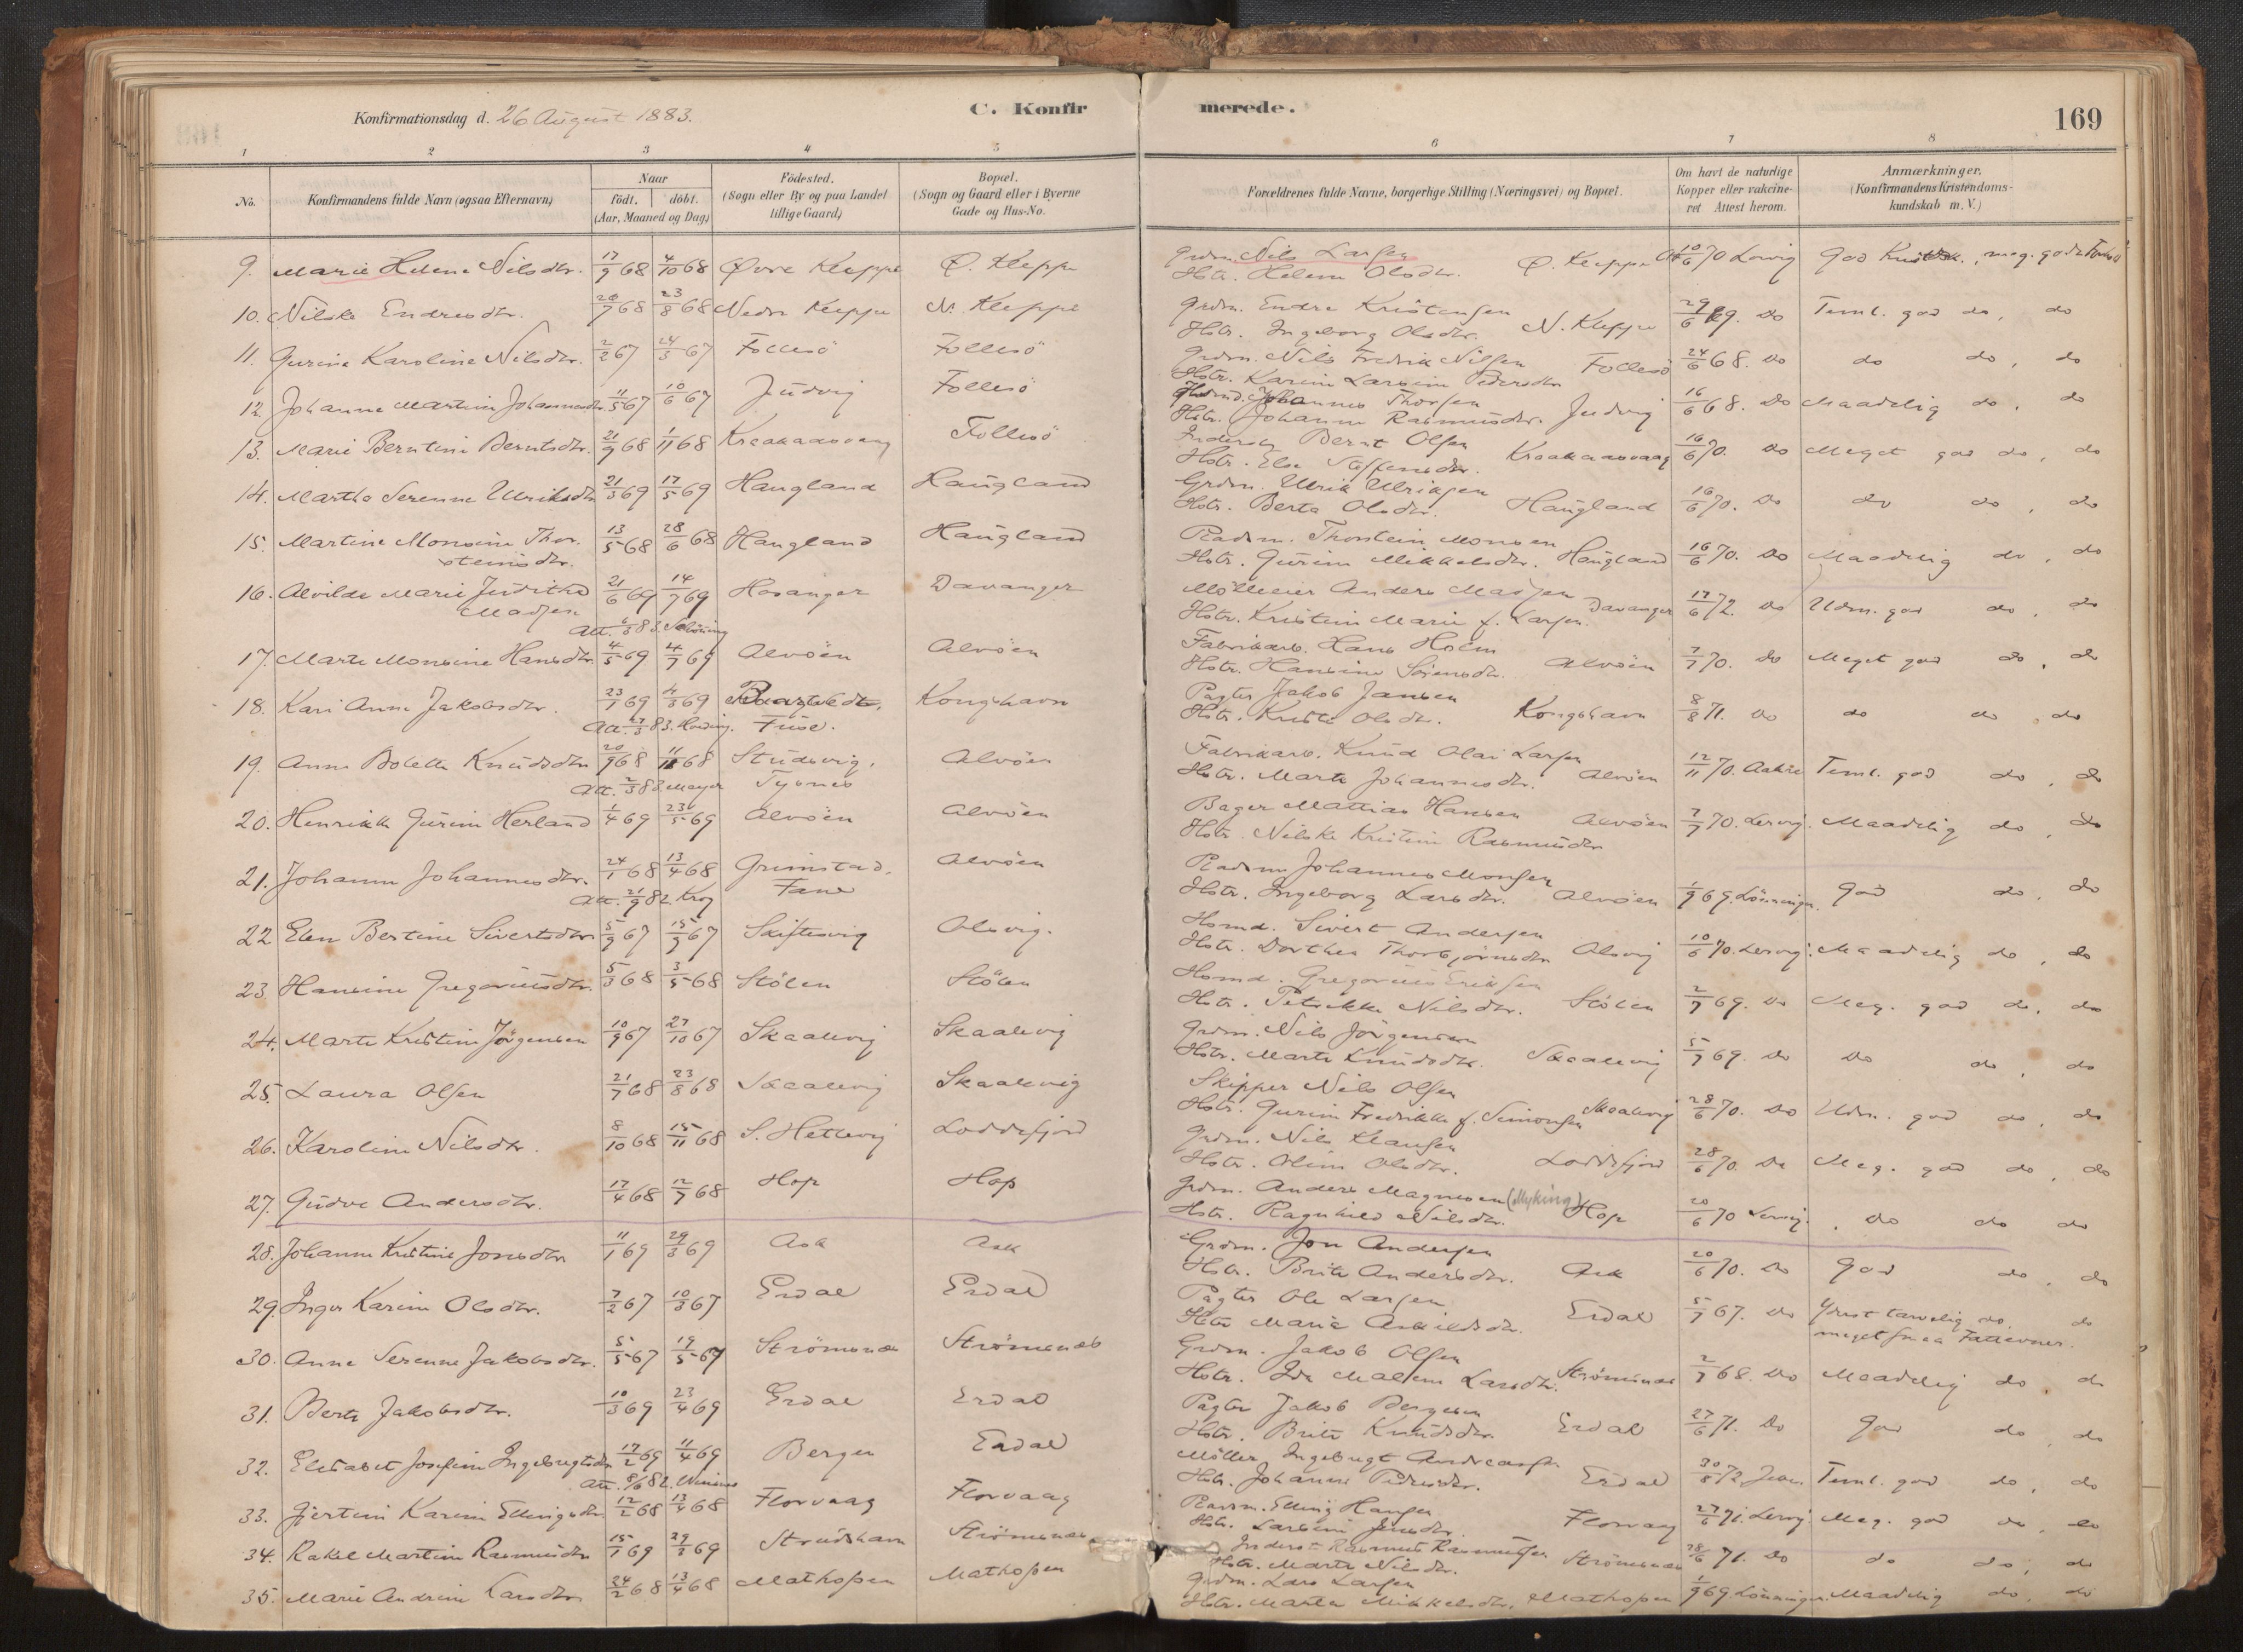 Konfirmationsdag d. 26 August 1883. C. Konfirmerede. 169
1 2 3 4 5 6 7 8
No. Konfirmandens fulde Navn (ogsaa Efternavn) Naar födt. döbt. (Aar, Maaned og Dag) Födested. (Sogn eller By og paa Landet tillige Gaard) Bopæl. (Sogn og Gaard eller i Byerne Gade og Hus-No. Forældrenes fulde Navne, borgerlige Stilling (Næringsvei) og Bopæl. Om havt de naturlige Kopper eller vakcineret Attest herom. Anmærkninger. (Konfirmandens Kristendomskundskab m. V.)
9. Marie Helene Nilsdtr. 17/9 68 4/10 68 Øvre Kleppe Ø. Kleppe Grdm. Nils Larsen Ø. Kleppe 10/6 70 Lervig God
Hstr. Helene Olsdtr.
10. Nilske Endresdtr. 23/8 68 Nedre Kleppe N. Kleppe Grdm. Endre Kristensen N. Kleppe 29/6 69. Do Teml. god do, do
Hstr. Ingeborg Olsdtr.
11. Gurine Karoline Nilsdtr. 2/2 67 24/3 67 Follesö Follesö Grdm. Nils Fredrik Nilsen Follesö 24/6 68. Do do do, do
Hstr. Karine Larsine Pedersdtr
12. Johanne Martine Johannesdtr. 11/5 67 10/6 67 Judvig Follesö Johannes Thorsen Judvig 16/6 68. Do Maadelig do, do
Hstr. Johanne Rasmusdtr.
13. Marie Berntine Berntsdtr. 21/9 68 1/11 68 Kraakaasvaag Follesö Inderst Bernt Olsen Kraakaasvaag 16/6 70. Do Meget god do, do
Hstr. Else Steffensdtr.
14. Martha Serenne Ulriksdtr 21/3 69 17/5 69 Haugland Haugland Grdm. Ulrik Ulriksen Haugland 16/6 70. Do do do, do
Hstr. Berta Olsdtr.
15. Martine Monsine Thorsteinsdtr. 13/5 68 28/6 68 Haugland Haugland Pladsm. Thorstein Monsen Haugland 16/6 70. Do Maadelig do, do
Hstr. Gurine Mikkelsdtr.
16. Alvilde Marie Juditha Madsen 21/6 69 14/7 69 Hosanger Davanger Mölleeier Anders Madsen Davanger 17/6 72. Do Udm. god do, do
Hstr. Kristine Marie f. Larsen.
17. Marte Monsine Hansdtr. 4/5 69 4/7 69 Alvöen Alvöen Fabrikarb. Hans Holm Alvöen 7/7 70. do Meget god do, do
Hstr. Hansine Sörensdtr.
18. Kari Anna Jakobsdtr. 23/1 69 4/3 69 Kongshavn Pagter Jakob Jansen Kongshavn 8/8 71. Do do do, do
Fuse. Hstr. Kristi Olsdtr.
19. Anna Bolette Knudsdtr 20/9 68 11/11 68 Studsvig, Alvöen Fabrikarb. Knud Olai Larsen Alvöen 12/11 70. Teml. god do, do
Att. 2/3 83 Meyer Tysnes Hstr. Marte Johannesdtr.
20. Henrikke Gurine Herland 1/4 69 23/5 69 Alvöen Alvöen Bager Mattias Hansen Alvöen 7/7 70. Lervig. Maadelig do, do
Hstr. Nilske Kristine Rasmusdtr
21. Johanne Johannesdtr. 24/1 68 13/4 68 Grimstad, Alvöen Pladsm Johannes Monsen Alvöen 1/9 69. Lönningen. God do, do
Att. 21/9 82. Krog Fane Hstr. Ingeborg Larsdtr.
22 Elen Bertine Sivertsdtr 5/9 67 15/9 67 Skiftesvig Olsvig. Hsmd. Sivert Andersen Olsvig 10/6 70. Lervig. Maadelig do, do
Hstr. Dorthea Thorbjörnsdtr
23 Hansine Gregoriusdtr. 5/3 68 3/5 68 Stölen Stölen Hsmd. Gregorius Eriksen Stölen 2/7 69. Do Meg. god do, do
Hstr. Petrikke Nilsdtr.
24. Marte Kristine Jörgensen 10/9 67 27/10 67 Skaalevig Skaalevig Grdm. Nils Jörgensen Skaalevig 5/7 69. Do Do do, do
Hstr. Marte Knudsdtr.
25. Laura Olsen 21/7 68 23/8 68 Skaalevig Skaalevig Skipper Nils Olsen Skaalevig 28/6 70. Do Udm. god do, do
Hstr. Gurine Fredrikke f. Simonsen
26. Karoline Nilsdtr. 8/10 68 15/11 68 S. Hetlevig Loddefjord Grdm. Nils Klausen Loddefjord 28/6 70. Do Meg. god do, do
Hstr. Oline Olsdtr.
27. Gudve Andersdtr. 17/4 68 12/7 68 Hop Hop Grdm. Anders Magnesen (Myking) Hop 20/6 70 Lervig. Do do do
Hstr. Ragnhild Nilsdtr.
28. Johanne Kristine Jonsdtr 11/1 69 29/3 69 Ask Ask Grdm. Jon Andersen Ask 20/6 70. Do God do, do
Hstr. Brite Andersdtr.
29. Inger Karine Olsdtr. 7/2 67 10/3 67 Erdal Erdal Pagter Ole Larsen Erdal 5/7 67. Do Yderst tarvelig do, do
Hstr Maria Askildsdtr. meget smaa Fatteevner.
30. Anne Serenne Jakobsdtr. 5/5 67 19/5 67 Strömsnæs Strömsnæs Grdm. Jakob Olsen Strömsnæs 2/7 68. Do Maadelig do, do
Hstr. Ida Malene Larsdtr.
31. Berte Jakobsdtr. 10/3 69 23/4 69 Erdal Erdal Pagter Jakob Bergesen Erdal 27/6 71. Do God do, do
Hstr. Brite Knudsdtr.
32. Elisabet Josefine Ingebrigtsdtr 17/2 69 11/4 69 Bergen Erdal Möller Ingebrigt Andreassen Erdal 30/8 72 Teml. god do, do
Hstr. Johanne Pedersdtr.
33. Gjertine Karine Ellingsdtr 12/2 68 13/4 68 Florvaag Florvaag Pladsm. Elling Hansen Florvaag 27/6 71. Lervig. Meg. god do, do
Hstr. Larsine Jensdtr.
34. Rakel Martine Rasmusdtr 15/1 69 29/3 69 Strudshavn Strömsnæs Inderst Rasmus Rasmussen Strömsnæs 28/6 71. Do do do, do
Hstr. Marte Nilsdtr.
35. Marie Andrine Larsdtr 24/2 68 13/4 68 Mathopen Mathopen Grdm. Lars Larsen Mathopen 1/9 69 Lönningen. Maadelig do, do
Hstr. Marta Mikkelsdtr.